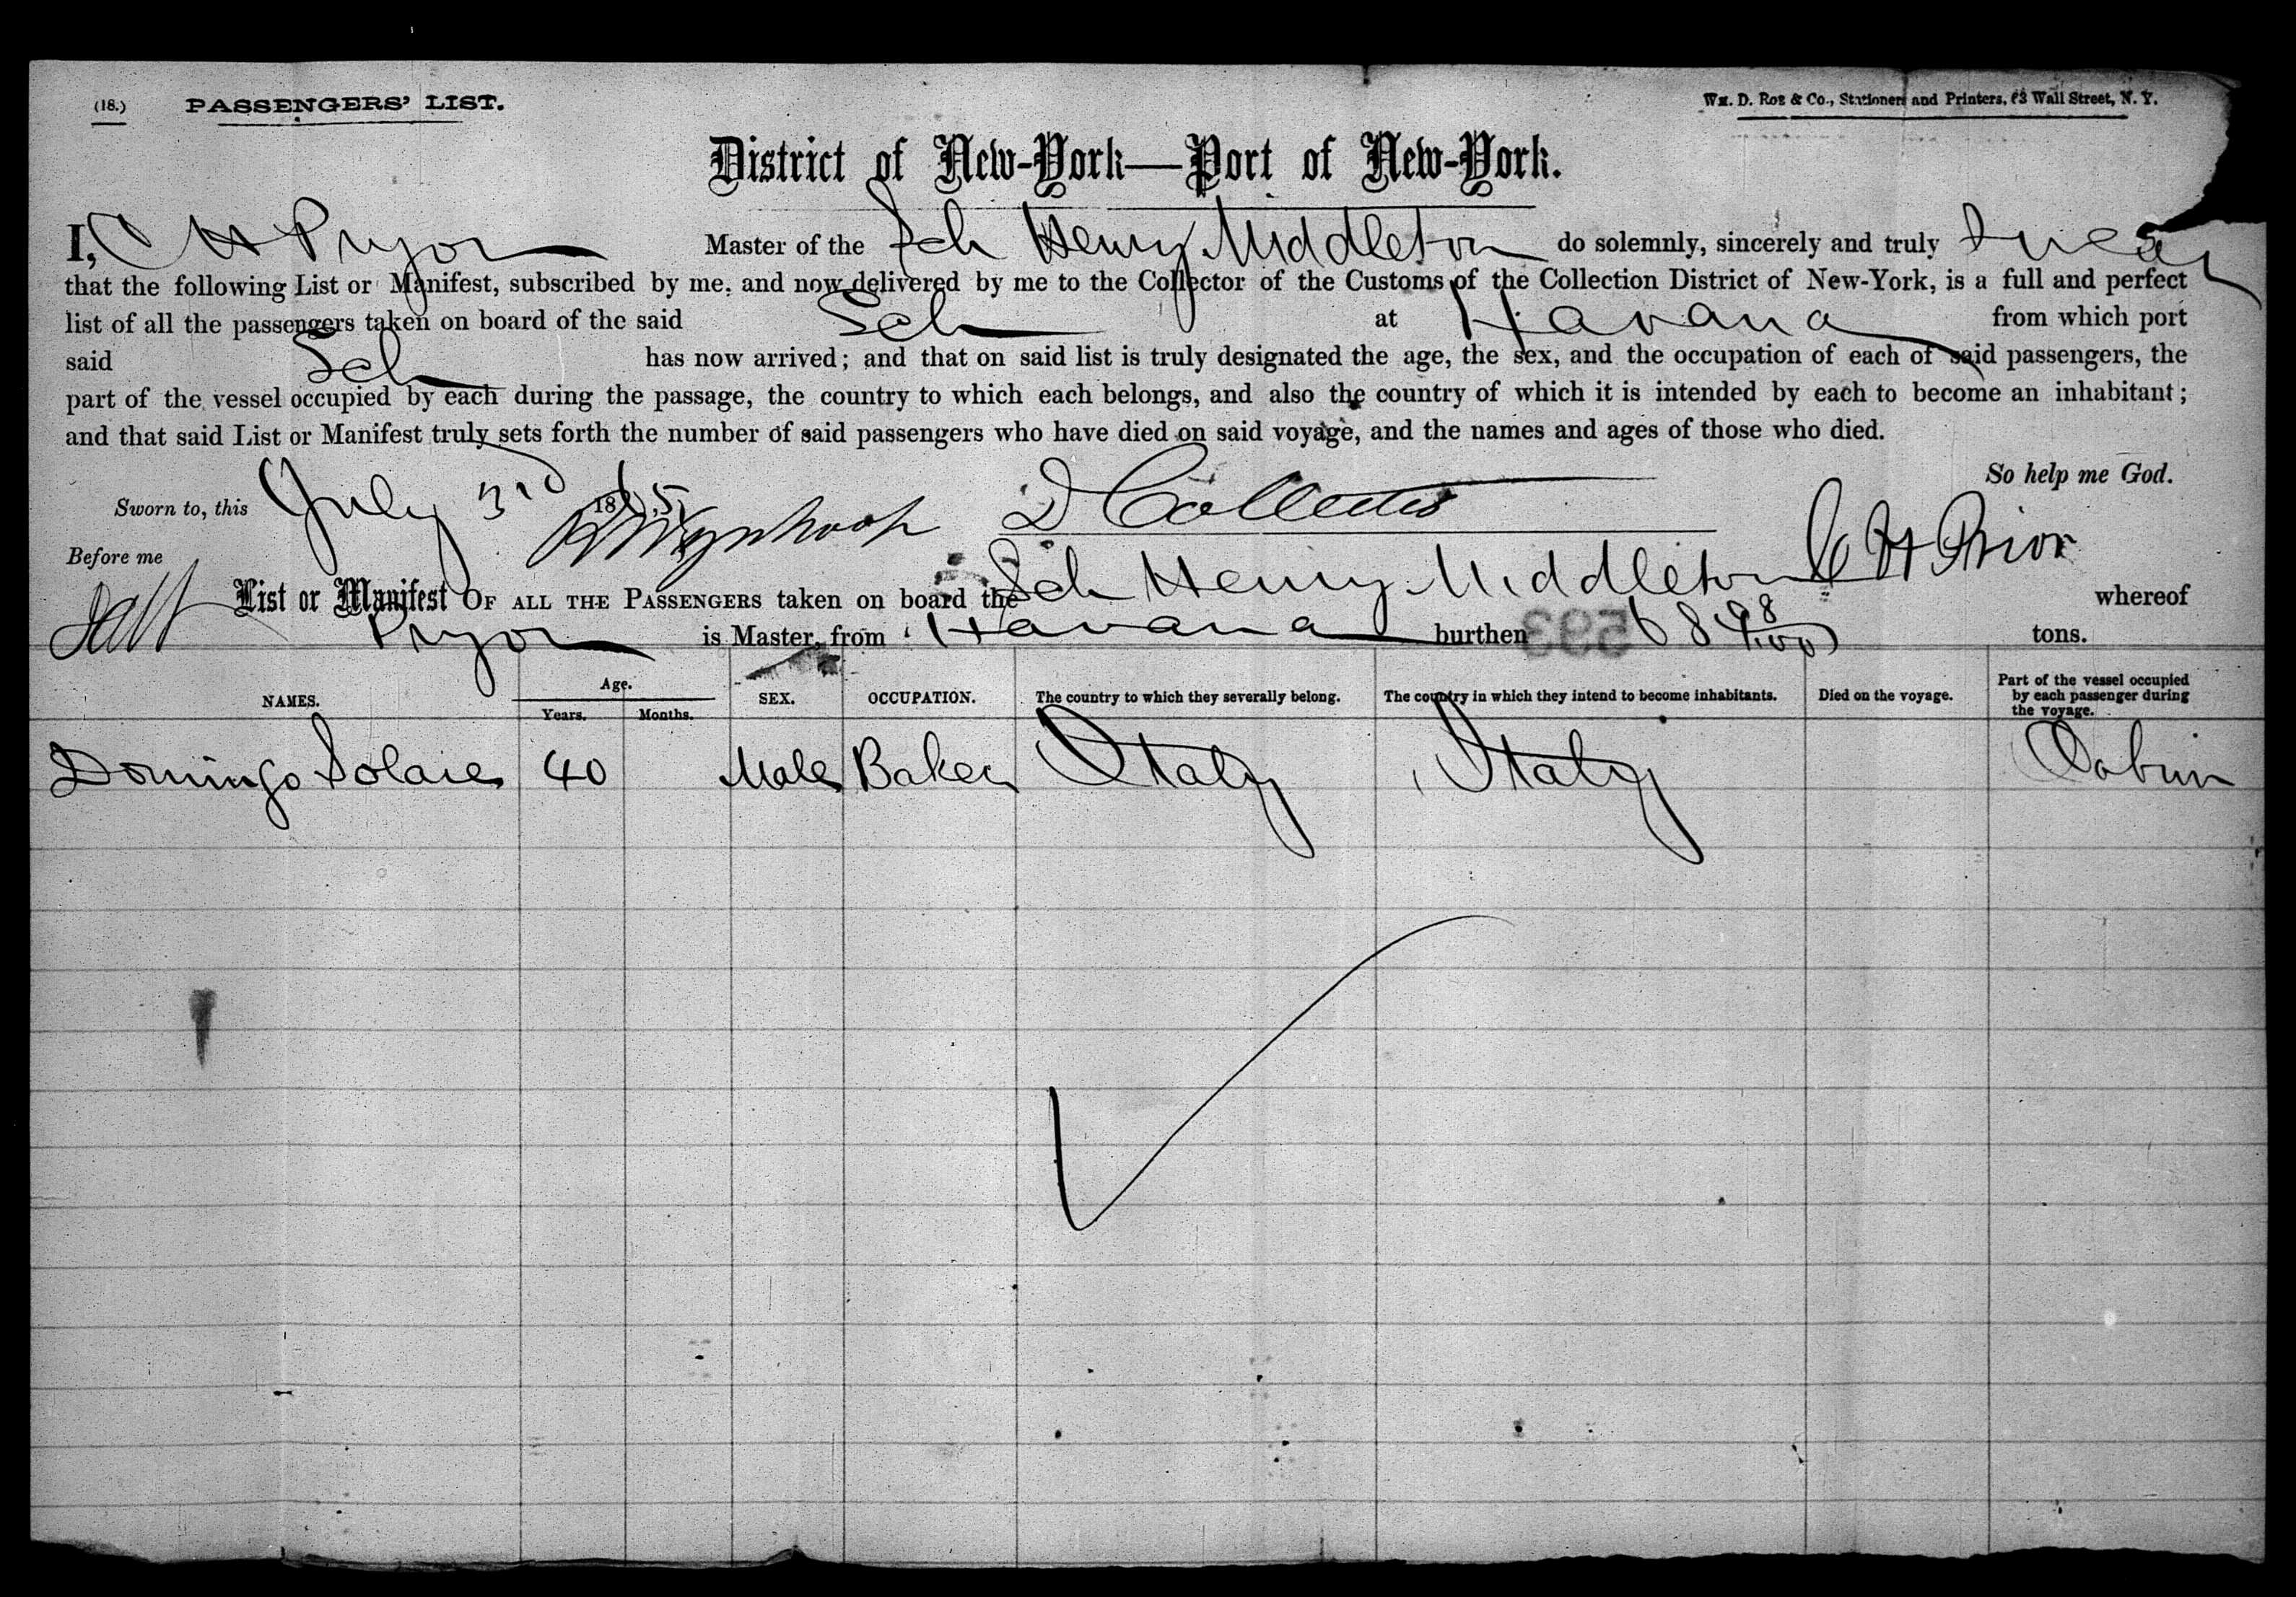 (18.) PASSENGERS' LIST. Wm. D. Roe & Co., Stationers and Printers, 63 Wall Street, N. Y.
District of New-York—Port of New-York.
I, C H Pryor Master of the Sch Henry Middleton do solemnly, sincerely and truly swear
that the following List or Manifest, subscribed by me, and now delivered by me to the Collector of the Customs of the Collection District of New-York, is a full and perfect
list of all the passengers taken on board of the said Sch at Havana from which port
said Sch has now arrived; and that on said list is truly designated the age, the sex, and the occupation of each of said passengers, the
part of the vessel occupied by each during the passage, the country to which each belongs, and also the country of which it is intended by each to become an inhabitant;
and that said List or Manifest truly sets forth the number of said passengers who have died on said voyage, and the names and ages of those who died.
So help me God.
Sworn to, this July 3rd 18 5 D Collector
Before me C H Prior
List or Manifest OF ALL THE PASSENGERS taken on board the Sch Henry Middleton whereof
Pryor is Master, from Havana burthen 593 684 98/100 tons.
NAMES. Age. Years. Months. SEX. OCCUPATION. The country to which they severally belong. The country in which they intend to become inhabitants. Died on the voyage. Part of the vessel occupied by each passenger during the voyage.
Domingo Solaies 40 Male Baker Italy Italy Cabin